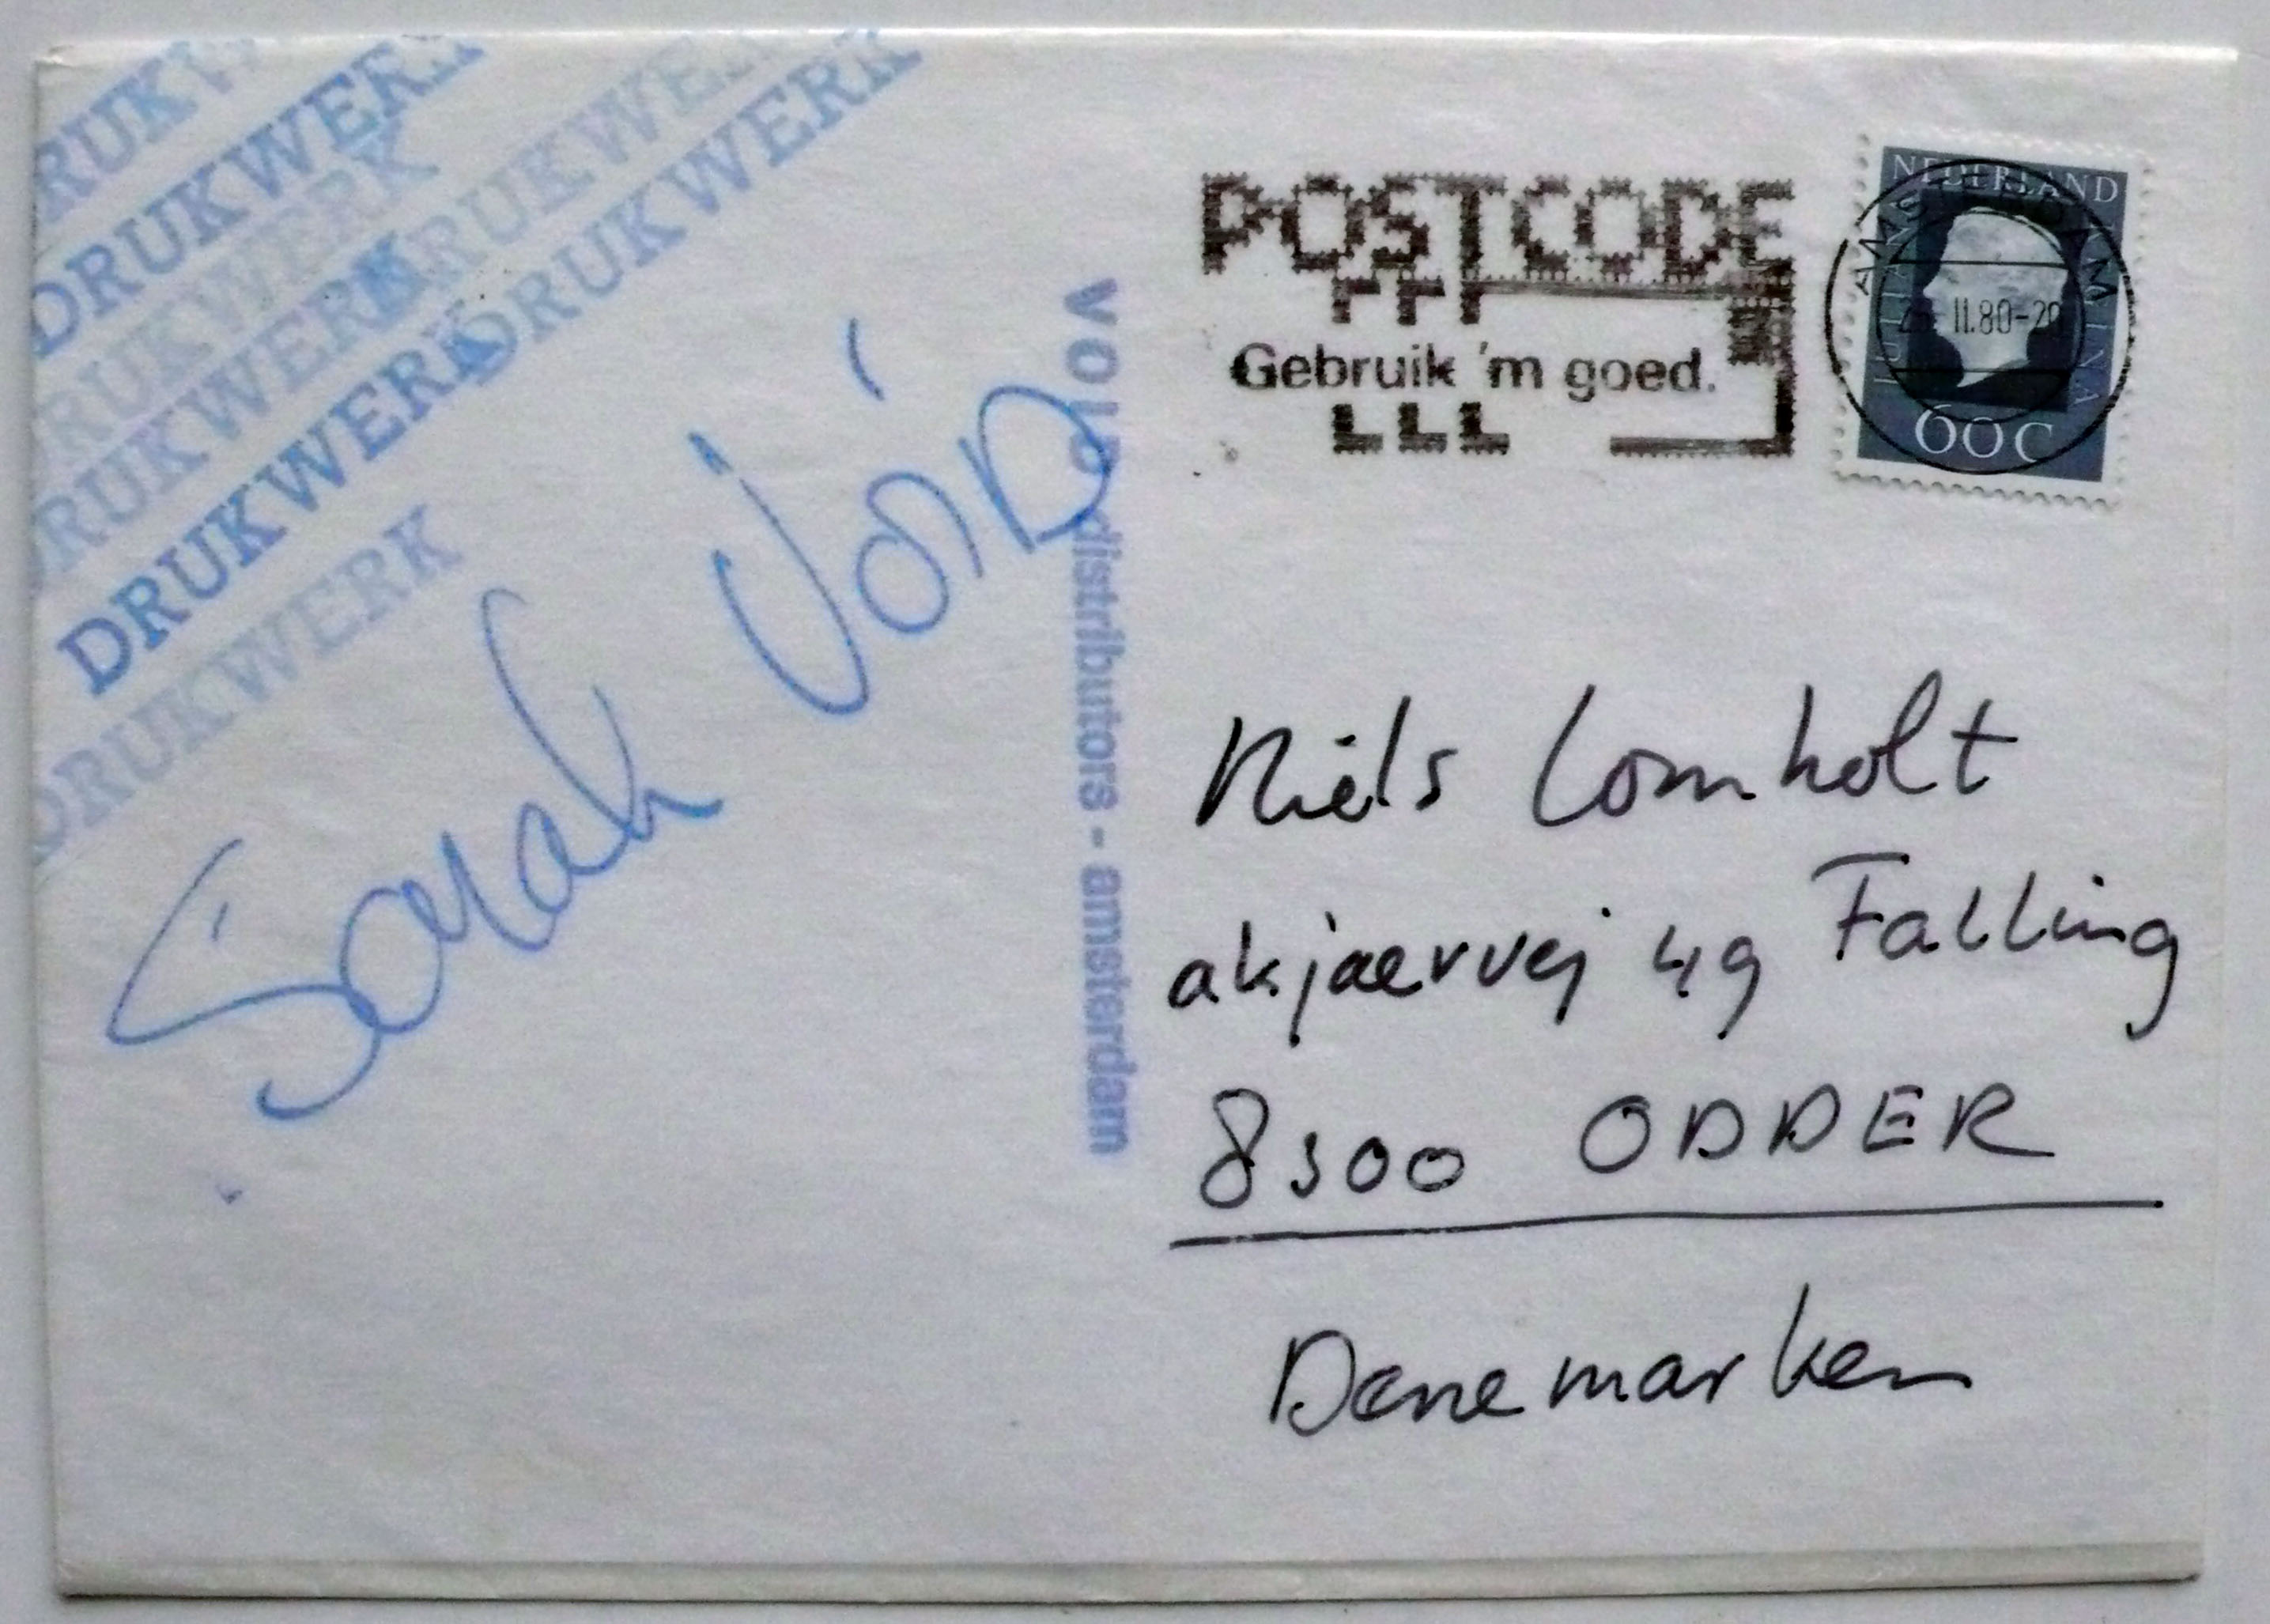 DRUKWERK
DRUKWERK
DRUKWERK
DRUKWERK
DRUKWERK
DRUKWERK
DRUKWERK
DRUKWERK
Sarah VOID
VOID distributors - amsterdam
POSTCODE
Gebruik 'm goed.
NEDERLAND
JULIANA REGINA
60 C
AMSTERDAM
11.80-20
Niels Lomholt
akjaervej 49 Falling
8300 ODDER
Danemarken